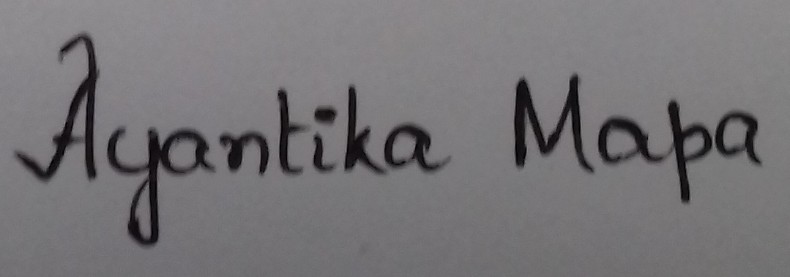 Ayantika Mapa